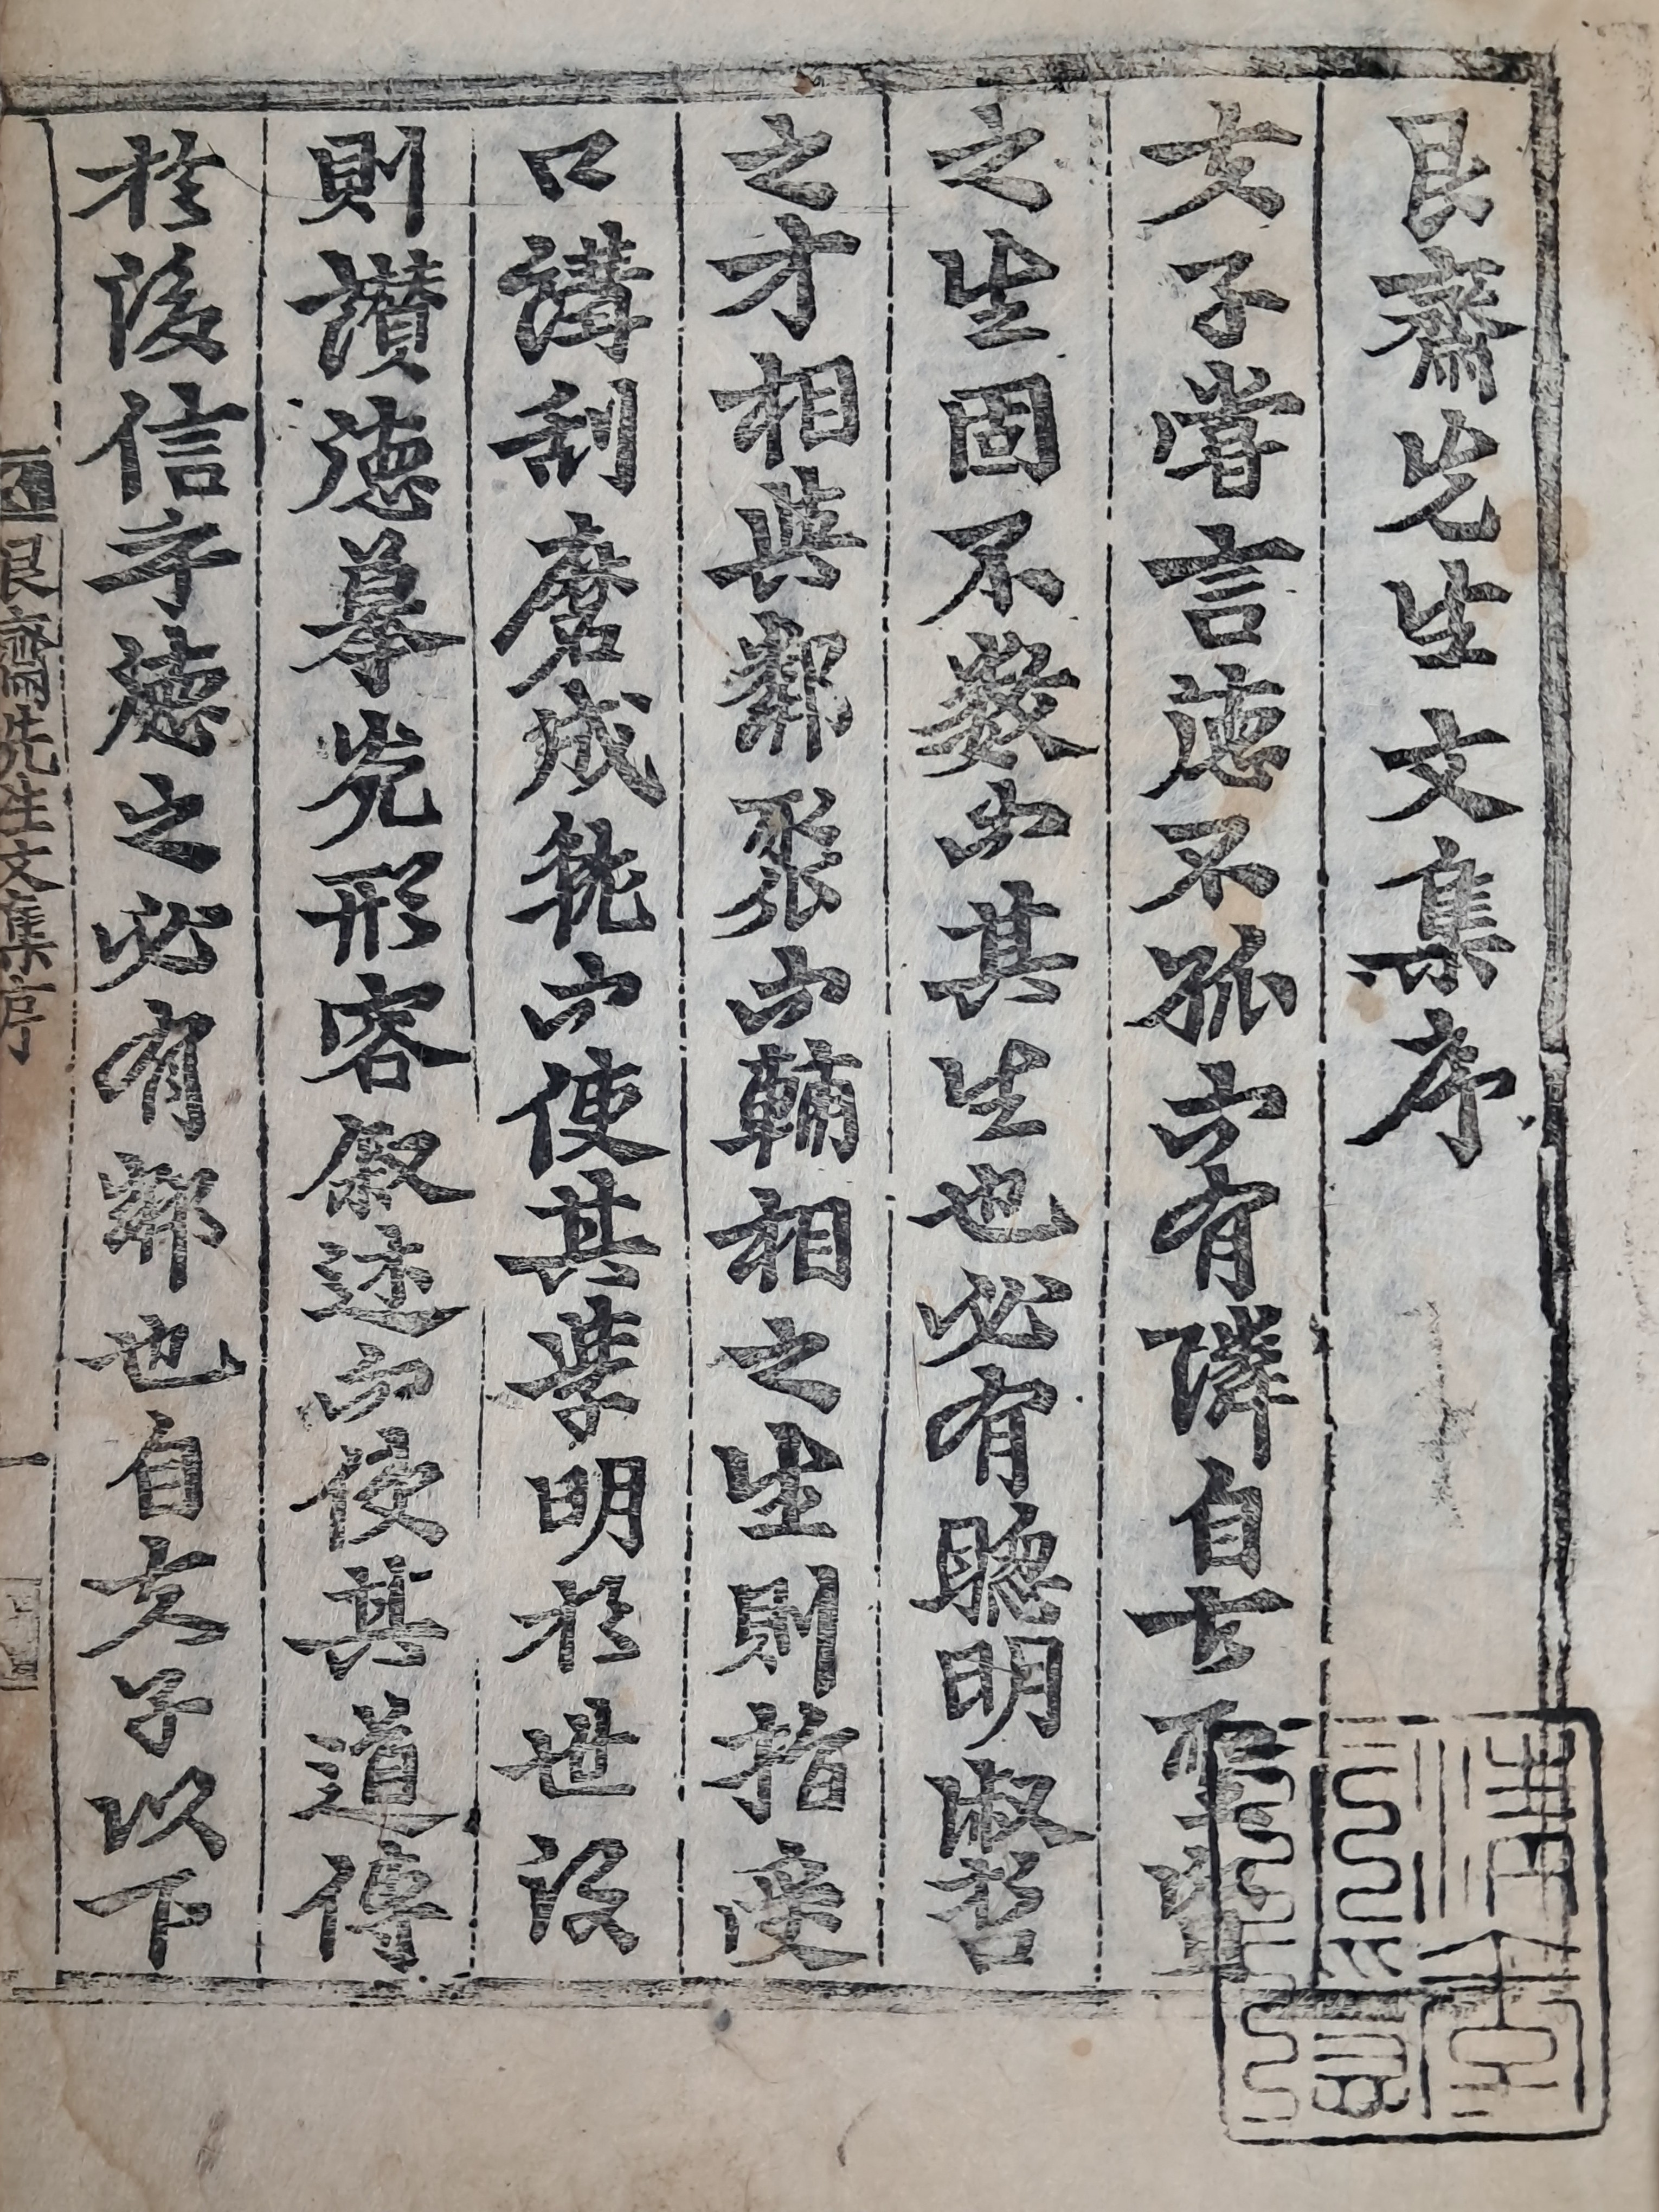 艮齋先生文集序
夫子嘗言德不孤而有隣自古聖賢
之生固不數而其生也必有聰明淑哲
之才相與鄰聚而輔相之生則指受
口講刮磨成就而使其學明於世沒
則讚德摹光形容叙述而使其道傳
於後信乎德之必有鄰也自夫子以下
艮齋先生文集序 一